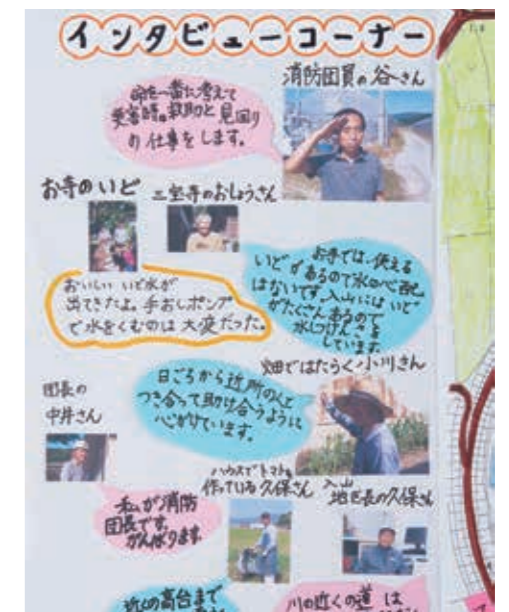 インタビューコーナー
消防団員の谷さん
命を一番に考えて
災害時の救助と見回り
の仕事をします。
お寺のいど
三宝寺のおしょうさん
おいしい いど水が
出てきたよ。手おしポンプ
で水をくむのは大変だった。
お寺では、使える
いどがあるので水の心配
はないです。入山にはいど
がたくさんあるので
水しつけんさを
しています。
畑ではたらく小川さん
日ごろから近所の人と
つき合って助け合うように
心がけています。
団長の
中井さん
私が消防
団長です。
がんばります。
ハウスでトマトを
作っている久保さん
入山
地区長の久保さん
近くの高台まで
川の近くの道は